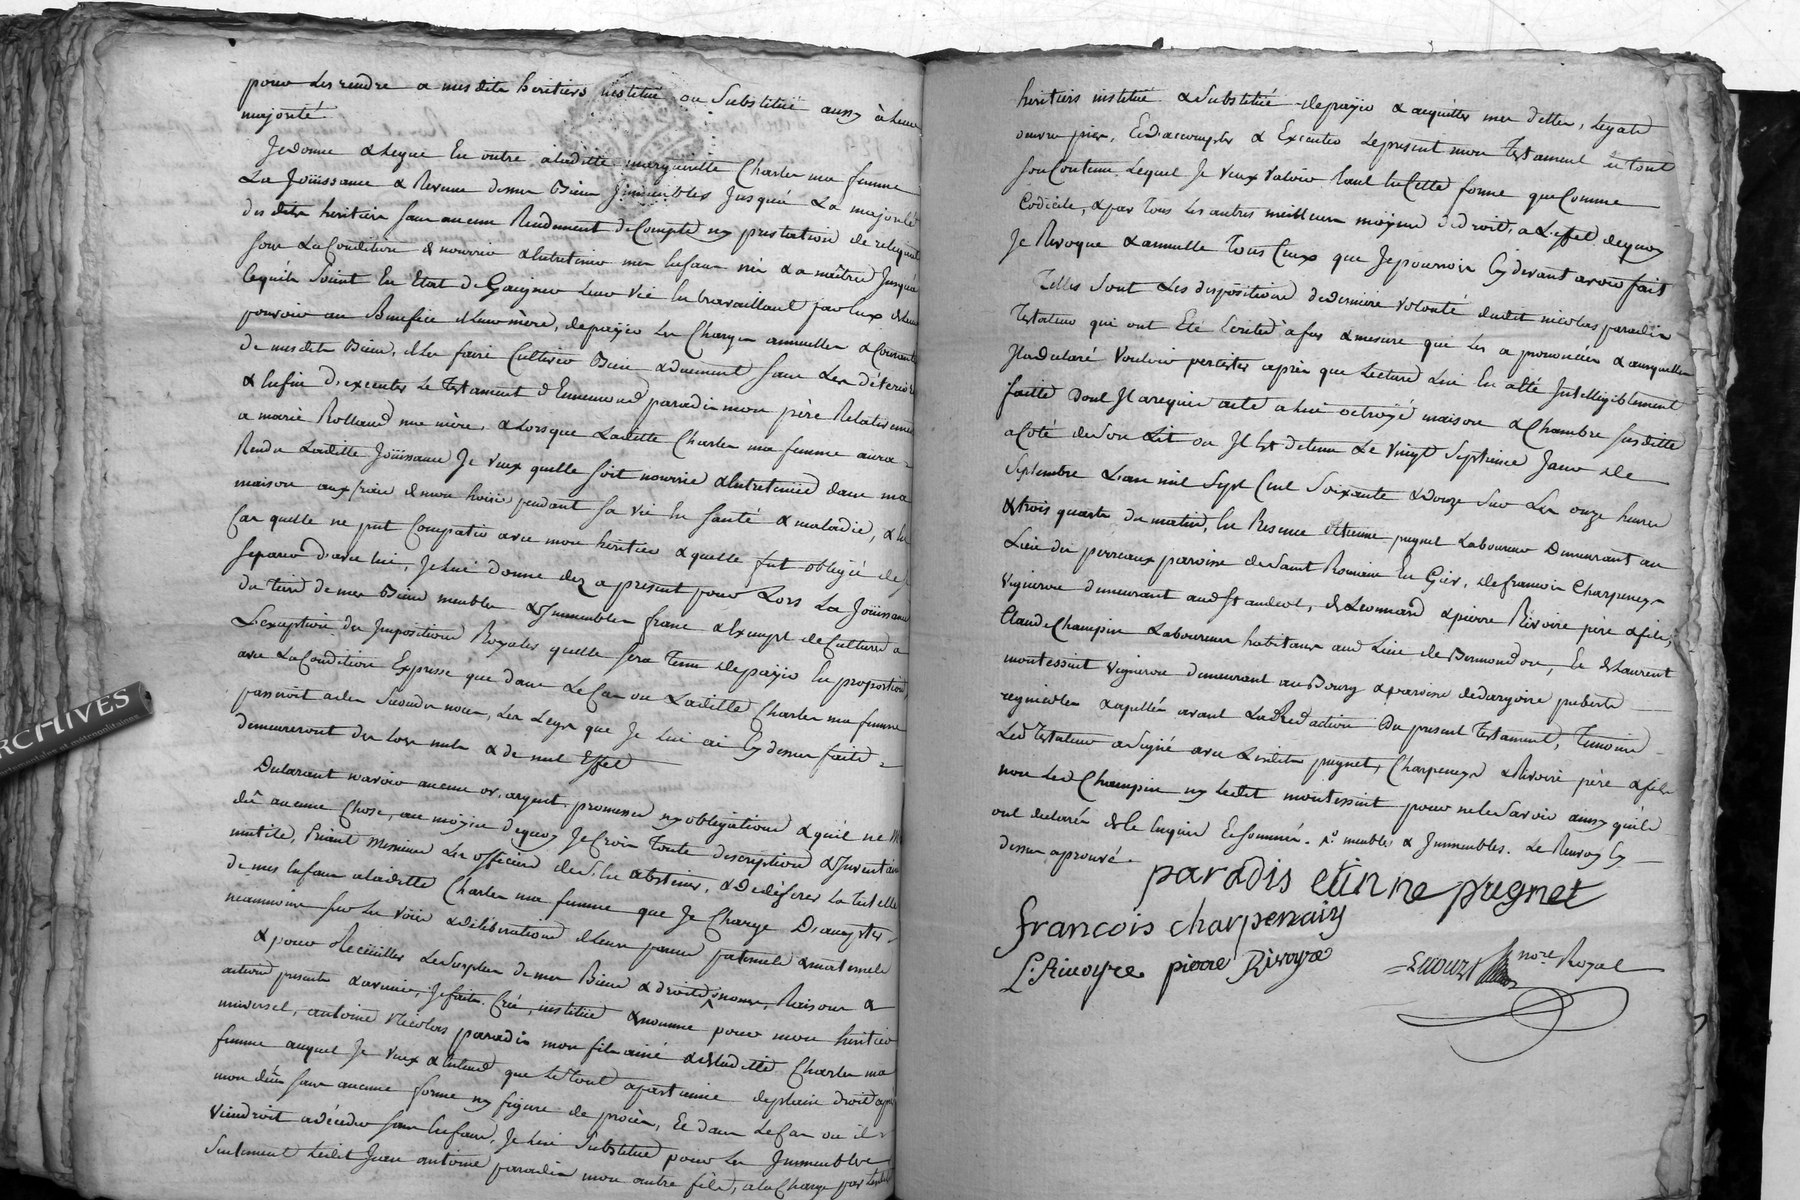 pour les rendre a mes dits heritiers institué ou Substitué aussy à leur
majorité
Je donne & legue En outre a laditte margueritte Charles ma femme
La Joüissance & Revenu de mes Biens Jmmeubles Jusqu'à La majorité
des dits heritiers sans aucun Rendement de Compte ny prestation de reliquat
sous La Condition de nourrir & Entretenir mes Enfans nés & a naître Jusqu'a
ce qu'ils Soient En Etat de Gaigner leur vie En travaillant par Eux & de
pouvoir au Benefice de leur mère, de payer les Charges annuelles & Courantes
de mes dits Biens, de les faire Cultiver Bien & duement sans les déteriorer
& Enfin D'executer Le Testament d'Ennemond paradis mon père Relativement
a marie Rolland ma mère, & Lorsque Ladette Charles ma femme aura
Rendu Laditte Joüissance Je veux quelle soit nourrie & Entretenüe dans ma
maison aux frais de mon hoirie pendant sa vie En santé & maladie, & En
Cas quelle ne put Compatir avec mon heritier & quelle fut obligée de se
separer d'avec lui, Je lui donne dez a present pour Lors La Joüissance
du tiers de mes Biens meubles & Jmmeubles franc & Exempt de Culture a
L'exception des Jmpositions Royales quelle sera Tenue de payer En proportion
avec La Condition Expresse que dans Le Cas ou Laditte Charles ma femme
passeroit a des Secondes noces, Les Legs que Je lui ai Cy dessus faits
demeureront des lors nuls & de nul Effet
Declarant n'avoir aucun or, argent, promesses ny obligations & qu'il ne m'est
dû aucune Chose, au moyen de quoy Je Crois Toute description & Jnventaire
inutile, Priant Messieurs Les officiers de s'En abstenir, & De déferer la tutelle
de mes Enfans a ladette Charles ma femme que Je Charge D'accepter
neanmoins sur les voix & déliberations de leurs parens paternels & maternels
& pour Recüeillir Le Surplus de mes Biens & droits, noms, Raisons &
actions presents & avenir, Je fais, Crée, institue & nomme pour mon heritier
universel, antoine Nicolas paradis mon fils ainé & de laditte Charles ma
femme auquel Je veux & Entend que le tout apartienne de plein droit après
mon décès sans aucune forme ny figure de procès, Et dans Le Cas ou il
viendroit a déceder sans Enfans, Je lui Substitue pour les Jmmeubles
Seulement ledit Jean antoine paradis mon autre fils, a la Charge par lesdits
heritiers institué & Substitué de payer & acquitter mes dettes, legats
œuvres pies, Et d'accomplir & Executer Le present mon Testament en tout
son Contenu, Lequel Je veux valoir tant En Cette forme que Comme
Codicile, & par Tous Les autres meilleurs moyens de droit, a L'effet de quoy
Je Revoque & annulle Tous Ceux que Je pourrois Cy devant avoir fait
Telles Sont Les dispositions de derniere volonté dudit nicolas paradis
Testateur qui ont Eté Ecrites à fur & mesure qui Les a prononcées & auxquelles
Il a declaré Vouloir persister après que Lecture Lui En a été Jntelligiblement
faitte Dont Il a requis acte a lui octroyé maison & Chambre susditte
a Coté de Son Lit ou Il Est detenu Le Vingt Septieme Jour de
Septembre L'an mil Sept Cent Soixante & douze Sur Les onze heures
& trois quarts du matin, En Presence d'Etienne pugnet Laboureur Demeurant au
Lieu des perreaux paroisse de Saint Romain En Gier, de francois Charpenay
vigneron demeurant aud St andeol, de Leonnard & pierre Rivoire père & fils,
Claude Champin Laboureurs habitans aud Lieu de Bermondon, Et de Laurent
montessint vigneron demeurant au Bourg & paroisse de dargoire puberts
requis & apellés avant La Redaction du present Testament, Temoins
Led Testateur a Signé avec Lesdits pugnet, Charpenay & Rivoire père & fils
non Led Champin ny Ledit montessint pour ne le Savoir ainsy qu'ils
ont declarés de Ce Enquis Et Sommés. meubles & Jmmeubles. Le Renvoy Cy
dessus aprouvé.
paradis etienne pugnet
francois charpenaiy
L. Rivoyre pierre Rivoyre
nore Royal
ARCHIVES
départementales et métropolitaines